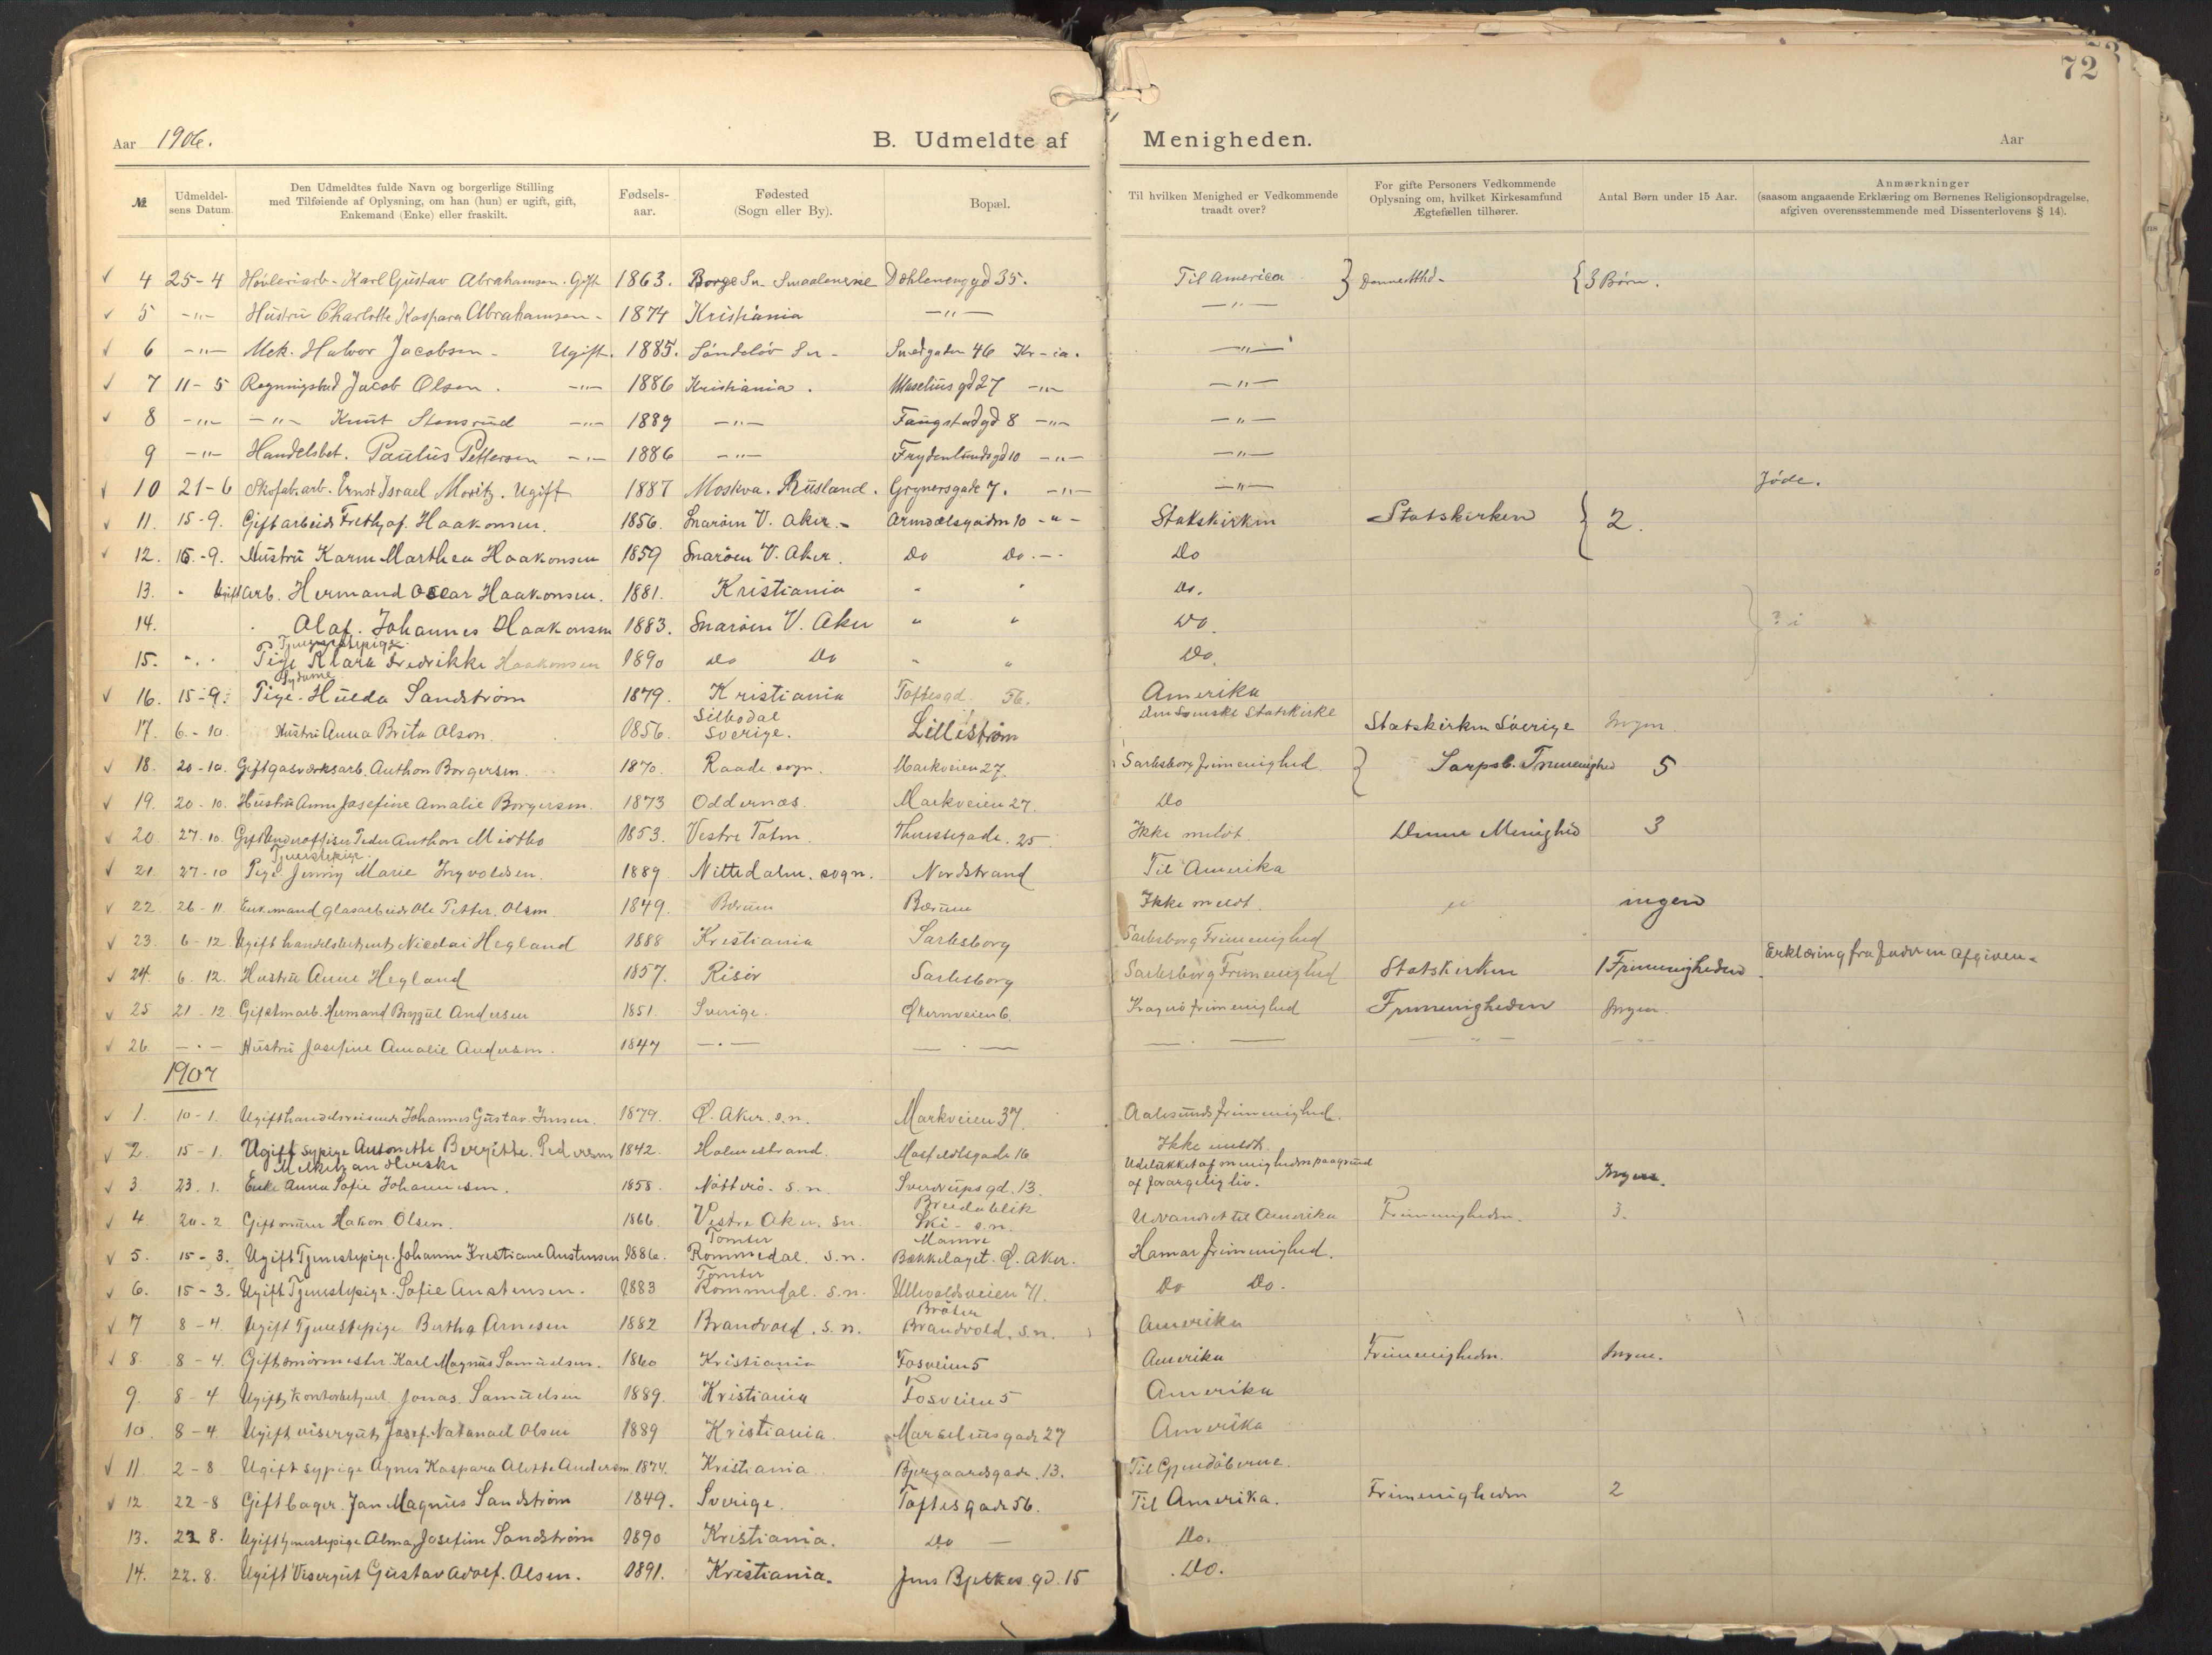 72
Aar 1906. B. Udmeldte af Menigheden. Aar
№ Udmeldelsens Datum. Den Udmeldtes fulde Navn og borgerlige Stilling med Tilføiende af Oplysning, om han (hun) er ugift, gift, Enkemand (Enke) eller fraskilt. Fødselsaar. Fødested (Sogn eller By). Bopæl. Til hvilken Menighed er Vedkommende traadt over? For gifte Personers Vedkommende Oplysning om, hvilket Kirkesamfund Ægtefællen tilhører. Antal Børn under 15 Aar. Anmærkninger (saasom angaaende Erklæring om Børnenes Religionsopdragelse, afgiven overensstemmende med Dissenterlovens § 14).
4 25-4 Høvleriarb. Karl Gustav Abrahamsen. Gift 1863. Borge Sn. Smaalenene Døhlenenggd 35. Til America } { 3 Børn.
5 -"- Hustru Charlotte Kaspara Abrahamsen - 1874 Kristiania -"- -"-
6 -"- Mek. Halvor Jacobsen - Ugift. 1885. Søndeløv Sn - 46 Kr-ia. -"-
7 11-5 Jacob Olsen. -"- 1886 Kristiania. Maselius gd 27 -"- -"-
8 -"- -"- Knut Stensrud -"- 1889 -"- Fougstadgd 8 -"- -"-
9 -"- Handelsbet. Paulus Pettersen -"- 1886 -"- Frydenlundsgd 10 -"- -"-
10 21-6 Skofab. arb. Ernst Israel Moritz. Ugift 1887 Moskva. Rusland. Grynersgade 7. -"- -"- Jøde.
11. 15-9. Gift arbeid Fredthjof. Haakonsen. 1856. Snarøen V. Aker.- Armodlsgaden 10 -"- Statskirken Statskirken } 2.
12. 15.-9. Hustru Karen Marthea Haakonsen 1859 Snarøen V. Aker. Do Do.-- Do
13. " Ugift arb. Hermand Oscar Haakonsen. 1881. Kristiania " " Do.
14. " Olaf. Johannes Haakonsen 1883. Snarøen V. Aker " " Do.
Tjenestepige
15. "." Pige Klara Fredrikke Haakonsen 1890 Do Do " " Do.
Sydame
16. 15-9. Pige. Hulda Sandstrøm 1879. Kristiania Toftesgd. 56. Amerika
17. 6.-10. Hustru Anna Brita Olson. 1856. Silbodal Sverige. Lillestrøm Den Svenske Statskirke Statskirken Sverige Ingen
18. 20-10. Gift gasværksarb. Anthon Borgersen. 1870. Raade sogn. Markveien 27. Sarlsborg frimenighed. } Sarpsb. Frimenighed 5
19. 20-10. Hustru Anna Josefine Amalie Borgersen. 1873 Oddernæs. Markveien 27. Do
20. 27.10. Gift Underoffiser Peder Anthon Miøtho 1853. Vestre Toten. Thuesegade. 25 Ikke meldt. Denne Menighed 3
Tjenestepige
21. 27-10 Pige Jenny Marie Ingvoldsen. 1889. Nittedalen. sogn. Nordstrand Til Amerika
22. 26-11 Enkemand glasarbeid. Ole Petter. Olsen 1849. Bærum Bærum Ikke meldt. ingen
23. 6-12 Ugift handelsbetjent Nicolai Hegland 1888 Kristiania Sarlsborg Sarlsborg Frimenighed
24. 6.12. Hustru Anne Hegland 1857. Risør Sarlsborg Sarlsborg Frimenighed Statskirken 1 Frimenigheden Erklæring fra Faderen afgiven.
25 21-12. Gift Herman Andersen 1851. Sverige. Økernveien 6. Kragerø frimenighed Frimenigheden Ingen.
26 -"- Hustru Josefine Amalie Andersen. 1847 -"- -"- -"- -"- -"-
1907
1. 10-1. Ugift handelsreisende Johannes Gustav Jensen. 1879. Ø. Aker. s.n. Markveien 37. Aalesunds frimenighed.
2. 15-1. Ugift sypige Antonette Bergitte. Pedersen 1842. Holmestrand. Mosfeldtsgade 16 Ikke meldt.
3. 23.1. Enke Anna Sofie Johannesen. 1858. Nøtterø. s.n. Sverdrupsgd. 13. Udelukket af menigheden paagrund af forargelig liv. Ingen.
4. 20-2 Gift murer Hakon Olsen. 1866. Vestre Aker. sn. Breidablik Ski-s.n. Udvandret til Amerika Frimenigheden. 3.
5. 15-3. Ugift Tjenestepige. Johanne Kristiane Austensen 1886. Tomter Rommedal. s.n. Mamre Bækkelaget. Ø. Aker. Hamar frimenighed.
6. 15-3. Ugift Tjenestepige. Sofie Austensen. 1883 Tomter Rommedal. s.n. Ullevoldsveien 71. Do Do.
7 8-4. Ugift Tjenestepige Bertha Arnesen 1882 Brandvold. s.n. Bråten Brandvold. s.n. Amerika
8. 8-4. Gift Karl Magnus Samuelsen. 1860 Kristiania Fosveien 5 Amerika Frimenigheden. Ingen.
9. 8-4 Ugift kontorbetjent Jonas. Samuelsen 1889. Kristiania Fosveien 5 Amerika
10. 8-4. Ugift visergut Josef. Natanael Olsen 1889 Kristiania. Marseliusgade 27 Amerika
11. 2-8 Ugift sypige Agnes Kaspara Alette Andersen. 1874. Kristiania. Bjergaardsgade. 13. Til Gjendøberne.
12. 22-8 Gift bager. Jan Magnus Sandstrøm 1849. Sverige. Toftesgade 56. Til Amerika. Frimenigheden 2
13. 22 8. Ugift tjenestepige Alma Josefine Sandstrøm 1890 Kristiania. Do - Do.
14. 22.8. Ugift Visergut Gustav Adolf. Olsen. 1891. Kristiania. Jens Bjelkes gd. 15 Do.